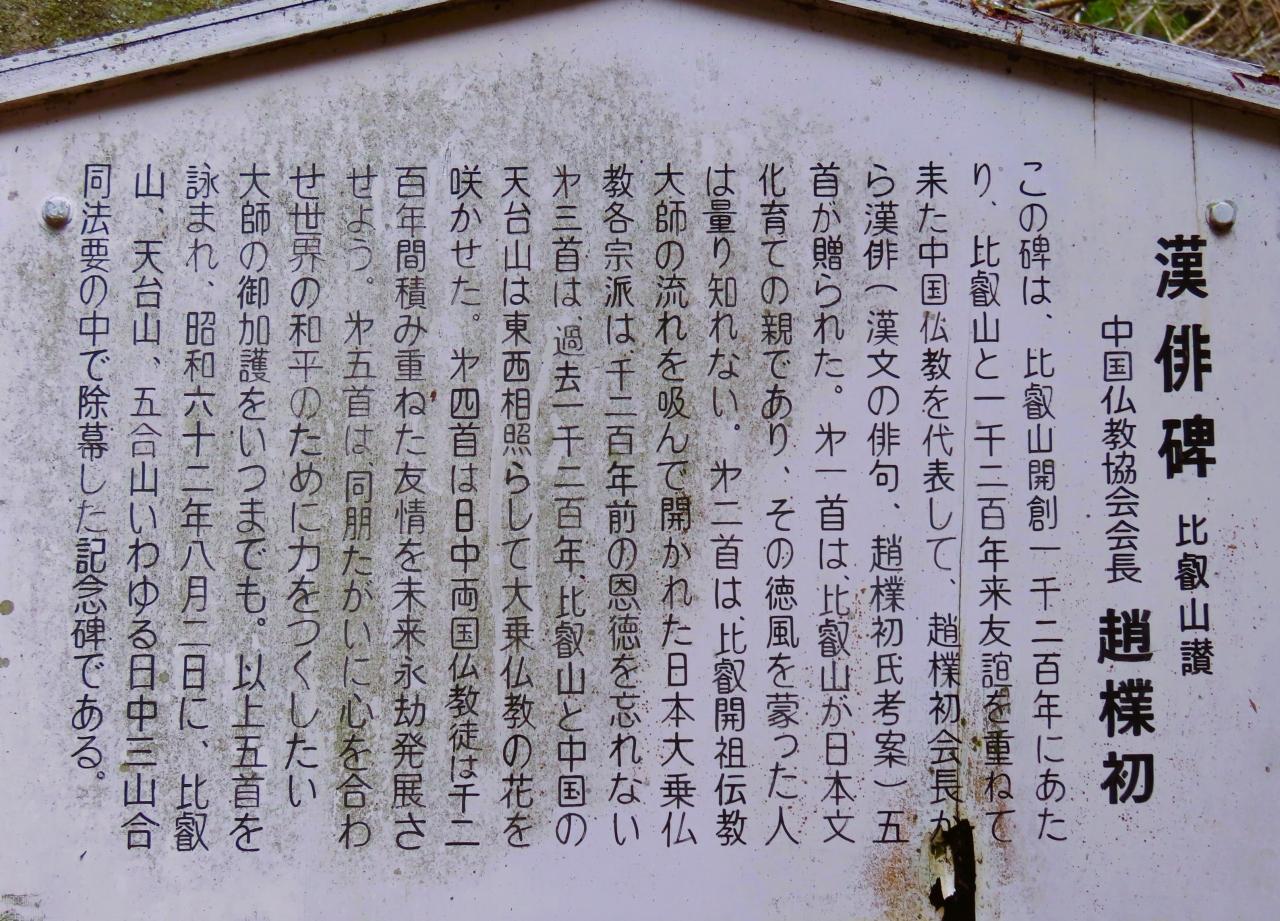 漢俳碑 比叡山讃
中国仏教協会会長 趙樸初
この碑は、比叡山開創一千二百年にあた
り、比叡山と一千二百年来友誼を重ねて
来た中国仏教を代表して、趙樸初会長か
ら漢俳(漢文の俳句、趙樸初氏考案)五
首が贈られた。㐧一首は、比叡山が、日本文
化育ての親であり、その徳風を蒙った人
は量り知れない。㐧二首は、比叡開祖伝教
大師の流れを吸んで開かれた日本大乗仏
教各宗派は、千二百年前の恩徳を忘れない
㐧三首は、過去一千二百年、比叡山と中国の
天台山は東西相照らして大乗仏教の花を
咲かせた。㐧四首は日中両国仏教徒は千二
百年間積み重ねた友情を未来永劫発展さ
せよう。㐧五首は、同朋たがいに心を合わ
せ世界の和平のために力をつくしたい
大師の御加護をいつまでも。以上五首を
詠まれ、昭和六十二年八月二日に、比叡
山、天台山、五台山いわゆる日中三山合
同法要の中で除幕した記念碑である。